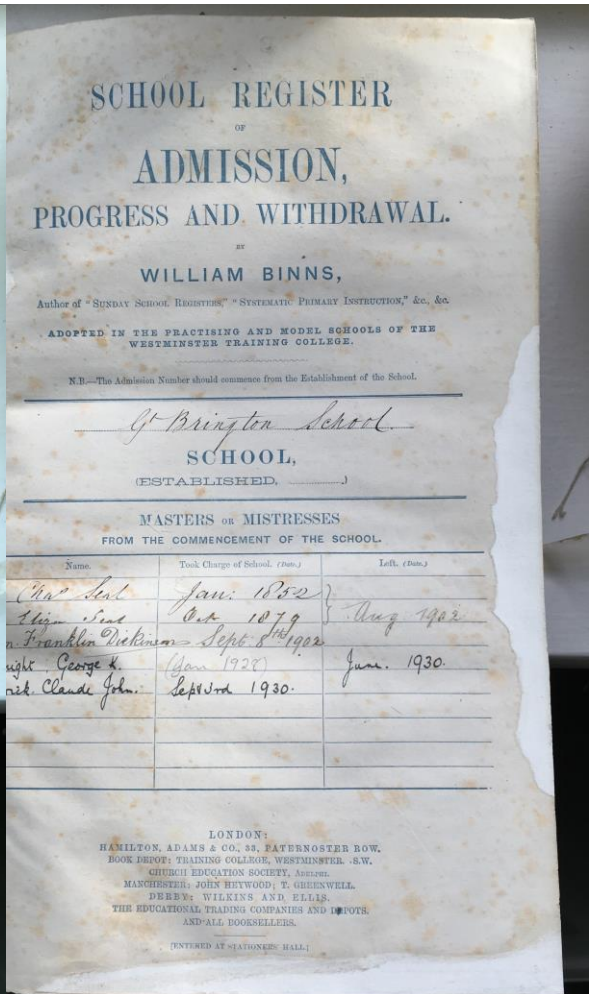 SCHOOL REGISTER
OF
ADMISSION,
PROGRESS AND WITHDRAWAL.
BY
WILLIAM BINNS,
Author of "SUNDAY SCHOOL REGISTERS," "SYSTEMATIC PRIMARY INSTRUCTION," &c., &c.
ADOPTED IN THE PRACTISING AND MODEL SCHOOLS OF THE
WESTMINSTER TRAINING COLLEGE.
N.B.—The Admission Number should commence from the Establishment of the School.
Gt Brington School.
SCHOOL,
(ESTABLISHED, )
MASTERS OR MISTRESSES
FROM THE COMMENCEMENT OF THE SCHOOL.
Name. Took Charge of School. (Date.) Left. (Date.)
Chas Seal Jan: 1852
Eliza Seal Oct 1879 Aug 1902
Franklin Dickinson Sept. 8th 1902
George K. (Jan 1928) June. 1930.
Claude John. Sept 3rd 1930.
LONDON:
HAMILTON, ADAMS & CO., 33, PATERNOSTER ROW.
BOOK DEPOT: TRAINING COLLEGE, WESTMINSTER. S.W.
CHURCH EDUCATION SOCIETY, ADELPHI.
MANCHESTER: JOHN HEYWOOD; T. GREENWELL.
DERBY: WILKINS AND ELLIS.
THE EDUCATIONAL TRADING COMPANIES AND DEPOTS.
AND ALL BOOKSELLERS.
[ENTERED AT STATIONERS' HALL.]